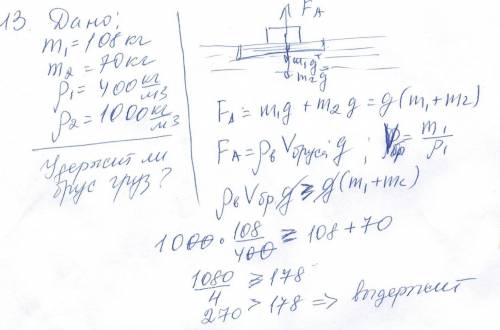 13. Дано:
m₁ = 108 кг
m₂ = 70 кг
ρ₁ = 400 кг/м3
ρ₂ = 1000 кг/м3
Удержит ли
брус груз?
F_A
m₁g
m₂g
F_A = m₁g + m₂g = g(m₁+m₂)
F_A = ρ_в V_бруса g ; V_бр = m₁/ρ₁
ρ_в V_бр g ≥ g(m₁+m₂)
1000 · 108/400 ≥ 108 + 70
1080/4 ≥ 178
270 > 178 => выдержит